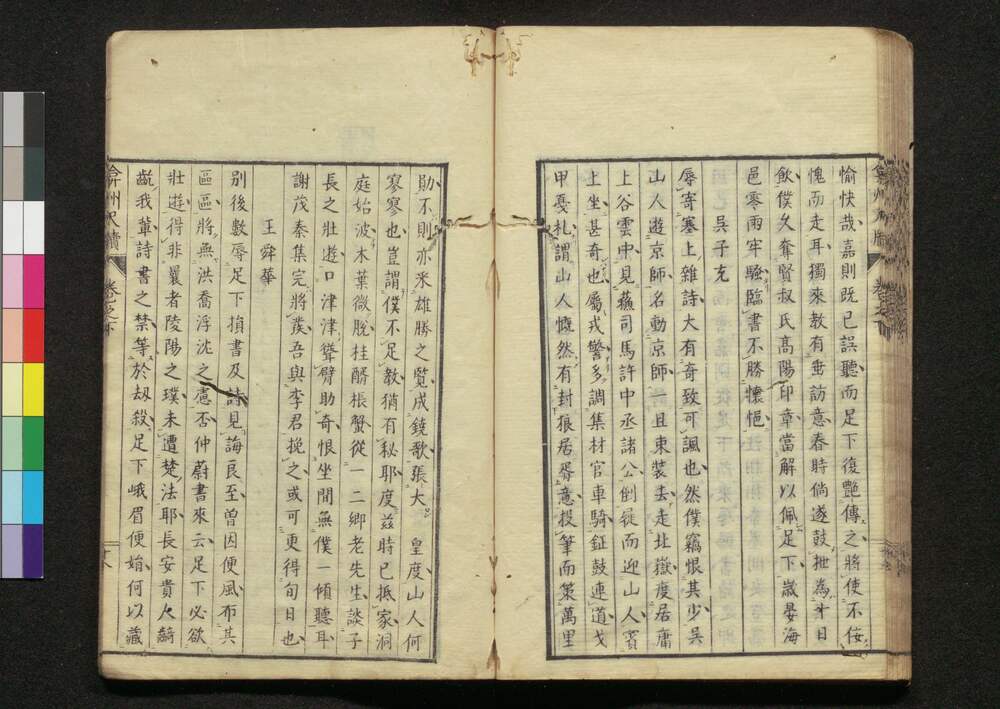 愉快哉嘉則既已誤聽而足下復艷傳之將使不佞
愧而走耳獨來教有垂訪意春時倘遂鼓枻為十日
飲僕久奪賢叔氏高陽印章當解以佩足下歲晏海
邑零雨牢騷臨書不勝懷悒
吳子充
辱寄塞上雜詩大有奇致可諷也然僕竊恨其少吳
山人遊京師名動京師一旦束裝去走北嶽度居庸
上谷雲中見蘓司馬許中丞諸公倒屣而迎山人賓
上坐甚奇也屬戎警多調集材官車騎鉦鼓連道戈
甲戞札謂山人慨然有封狼居胥意投筆而策萬里
勛不則亦釆雄勝之覽成鐃歌張大 皇度山人何
寥寥也豈謂僕不足教猶有秘耶度茲時已抵家洞
庭始波木葉微脫桂醑棖蟹從一二鄉老先生談子
長之壯遊口津津聳臂助奇恨坐間無僕一傾聽耳
謝茂秦集完將羙吾與李君挽之或可更得旬日也
王舜華
別後數辱足下損書及詩見誨良至曾因便風布其
區區將無洪喬浮沈之慮否仲蔚書來云足下必欲
壯遊得非曩者陵陽之璞未遭楚法耶長安貴人齮
齕我軰詩書之禁等於刼殺足下峨眉便娟何以藏
弇州尺牘 卷之下